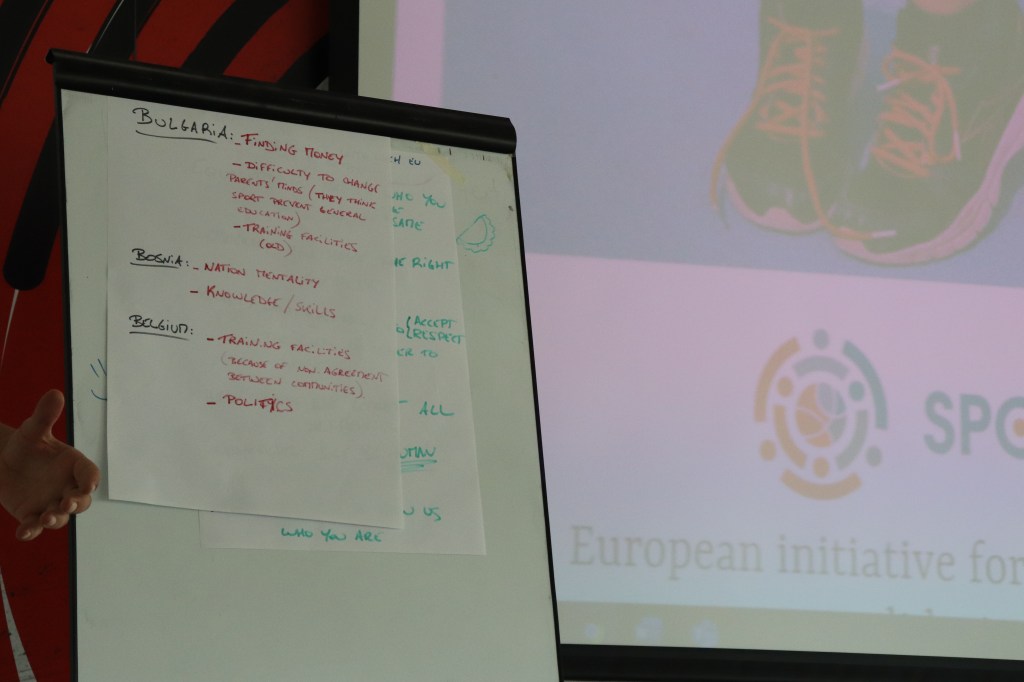 BULGARIA: - FINDING MONEY
- DIFFICULTY TO CHANGE
PARENTS' MINDS (THEY THINK
SPORT PREVENT GENERAL
EDUCATION)
- TRAINING FACILITIES
(OLD)
BOSNIA: - NATION MENTALITY
- KNOWLEDGE/SKILLS
BELGIUM:
- TRAINING FACILITIES
(BECAUSE OF NON-AGREEMENT
BETWEEN COMMUNITIES)
- POLITICS
EU
YOU
SAME
RIGHT
(ACCEPT
(RESPECT
TO
ALL
US
WHO YOU ARE
SPO
European initiative for